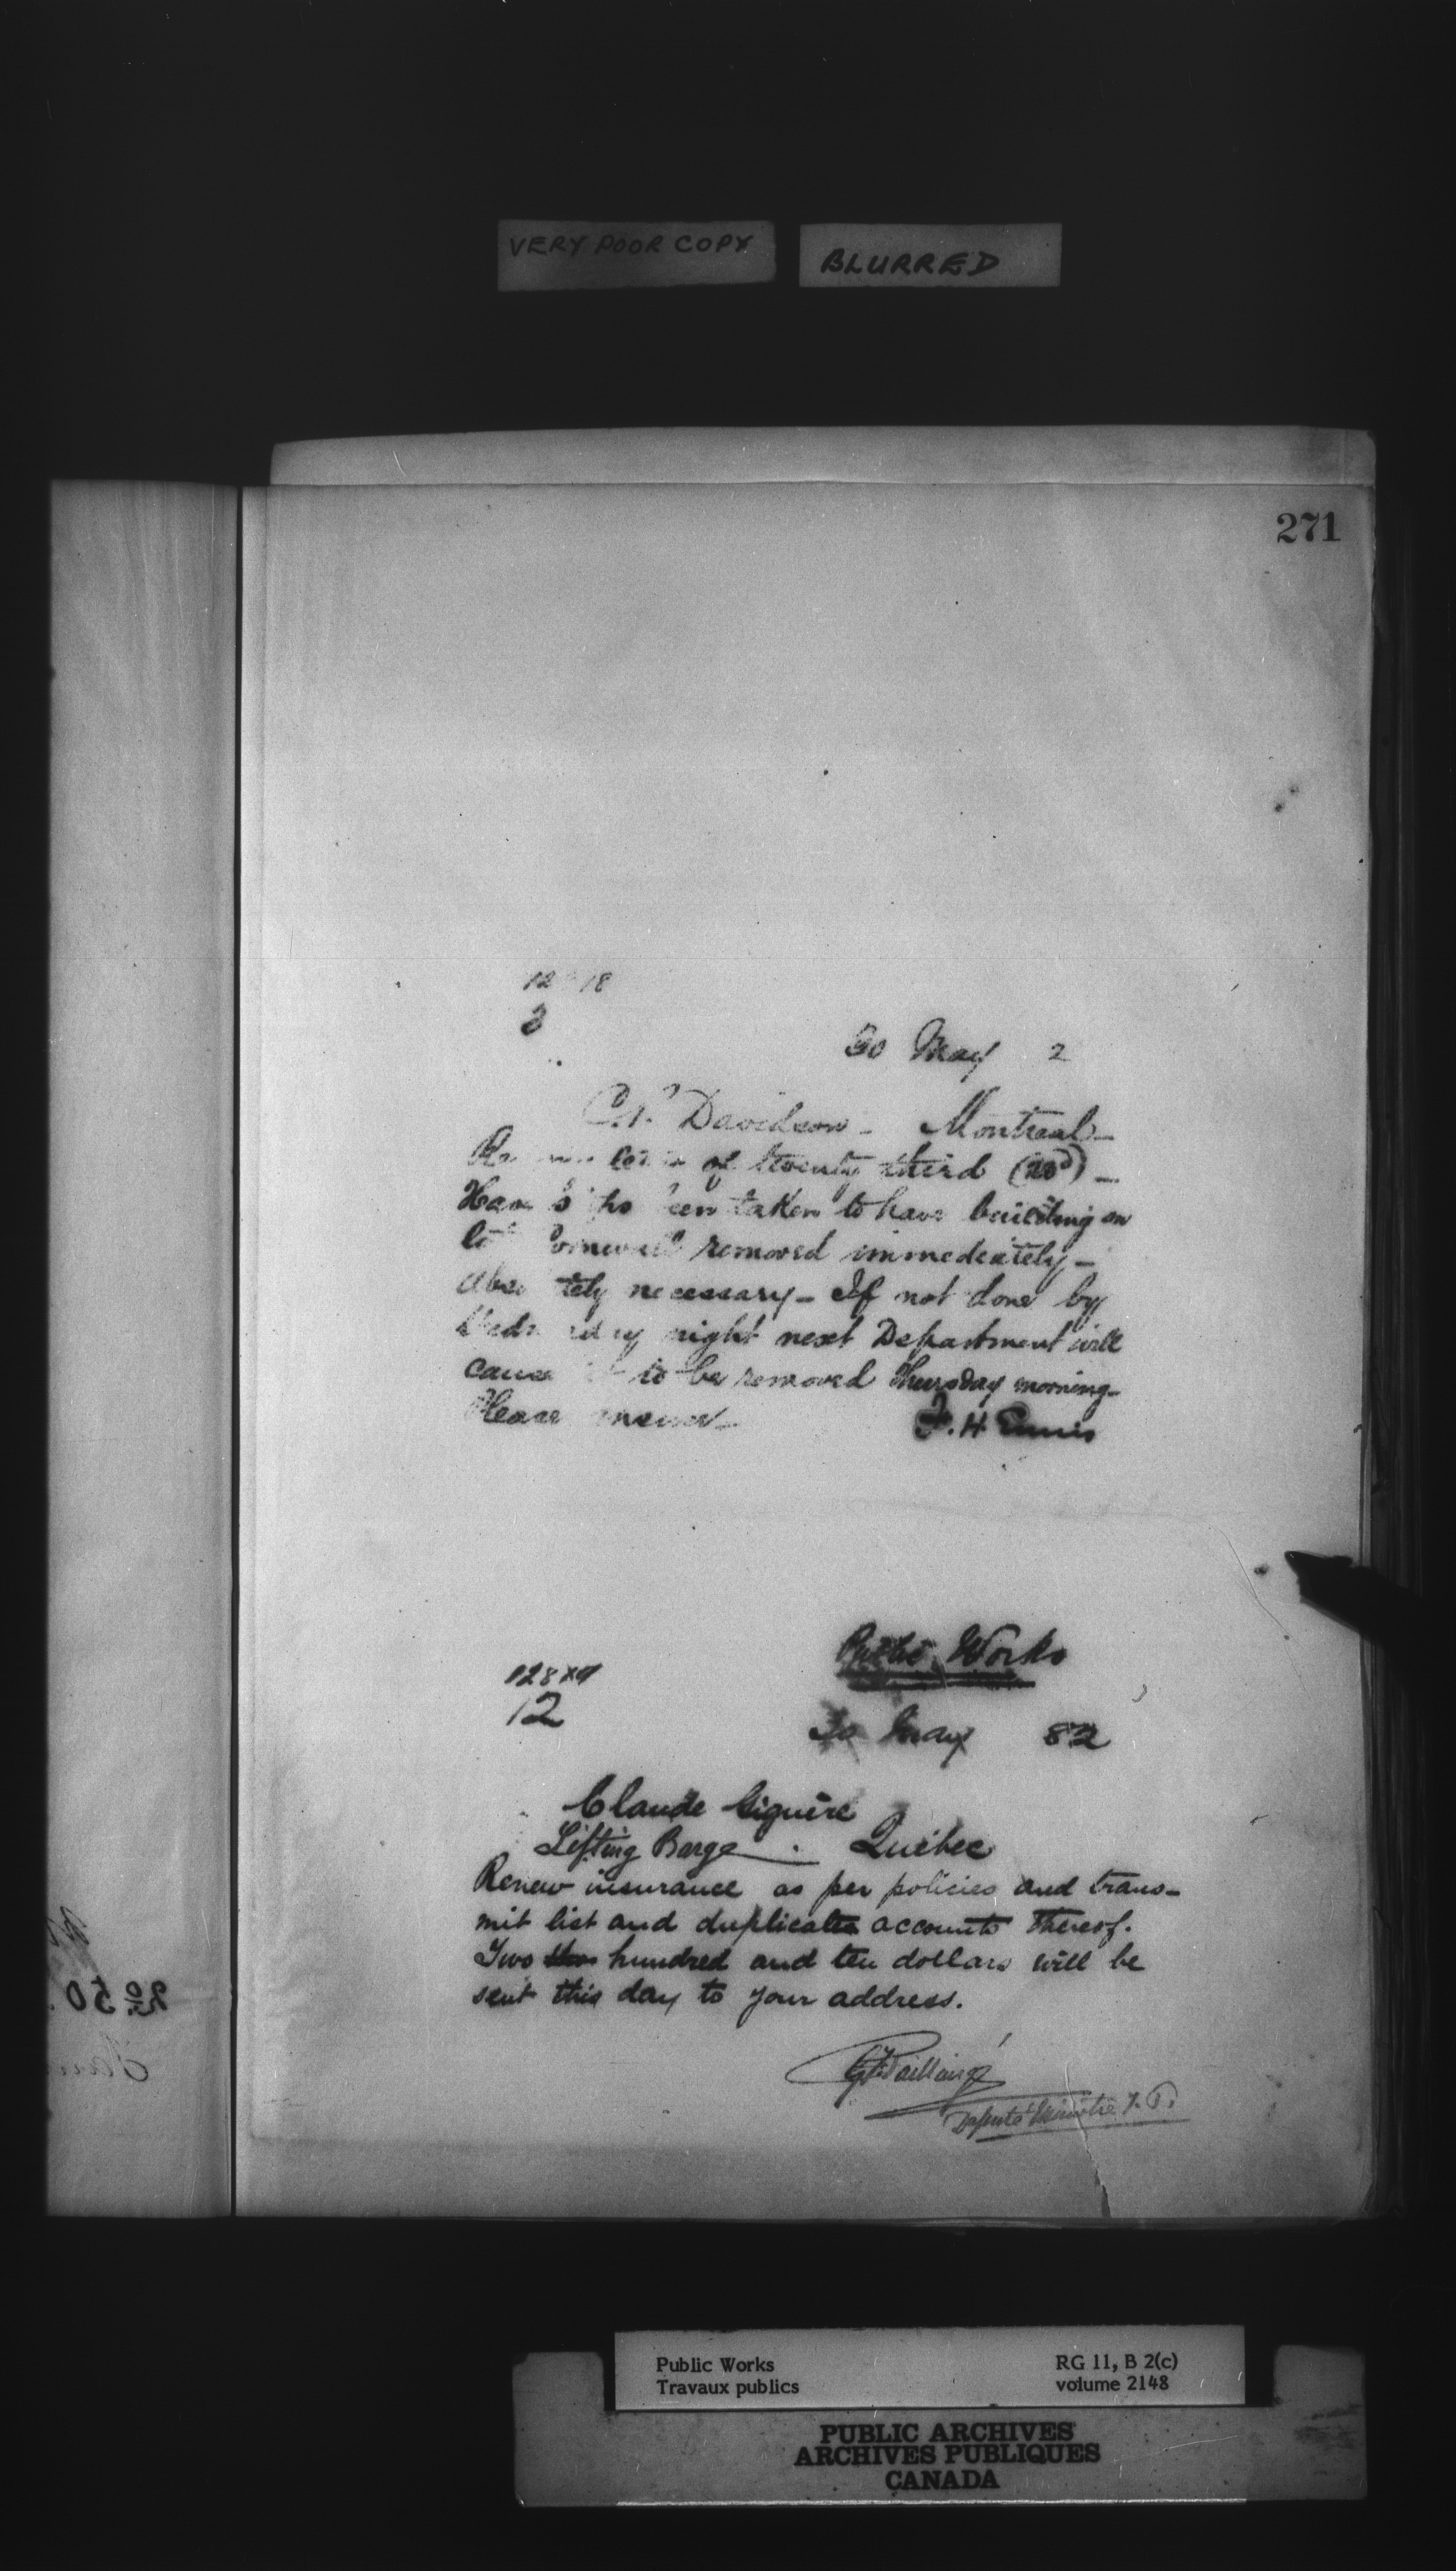 VERY POOR COPY
BLURRED
271
12 18
3
30 May 2
Davidson - Montreal -
of twenty third (23d) -
been taken to have building on
removed immediately -
necessary - If not done by
night next Department will
to be removed Thursday morning -
Please
F. H Ennis
Public Works
128
12
30 May 82
Claude Giguère
Lifting Barge Quebec
Renew insurance as per policies and trans-
mit list and duplicate accounts thereof.
Two hundred and ten dollars will be
sent this day to your address.
GF Baillairgé
Député Ministre T. P.
No. 50
Public Works
Travaux publics
RG 11, B 2(c)
volume 2148
PUBLIC ARCHIVES
ARCHIVES PUBLIQUES
CANADA